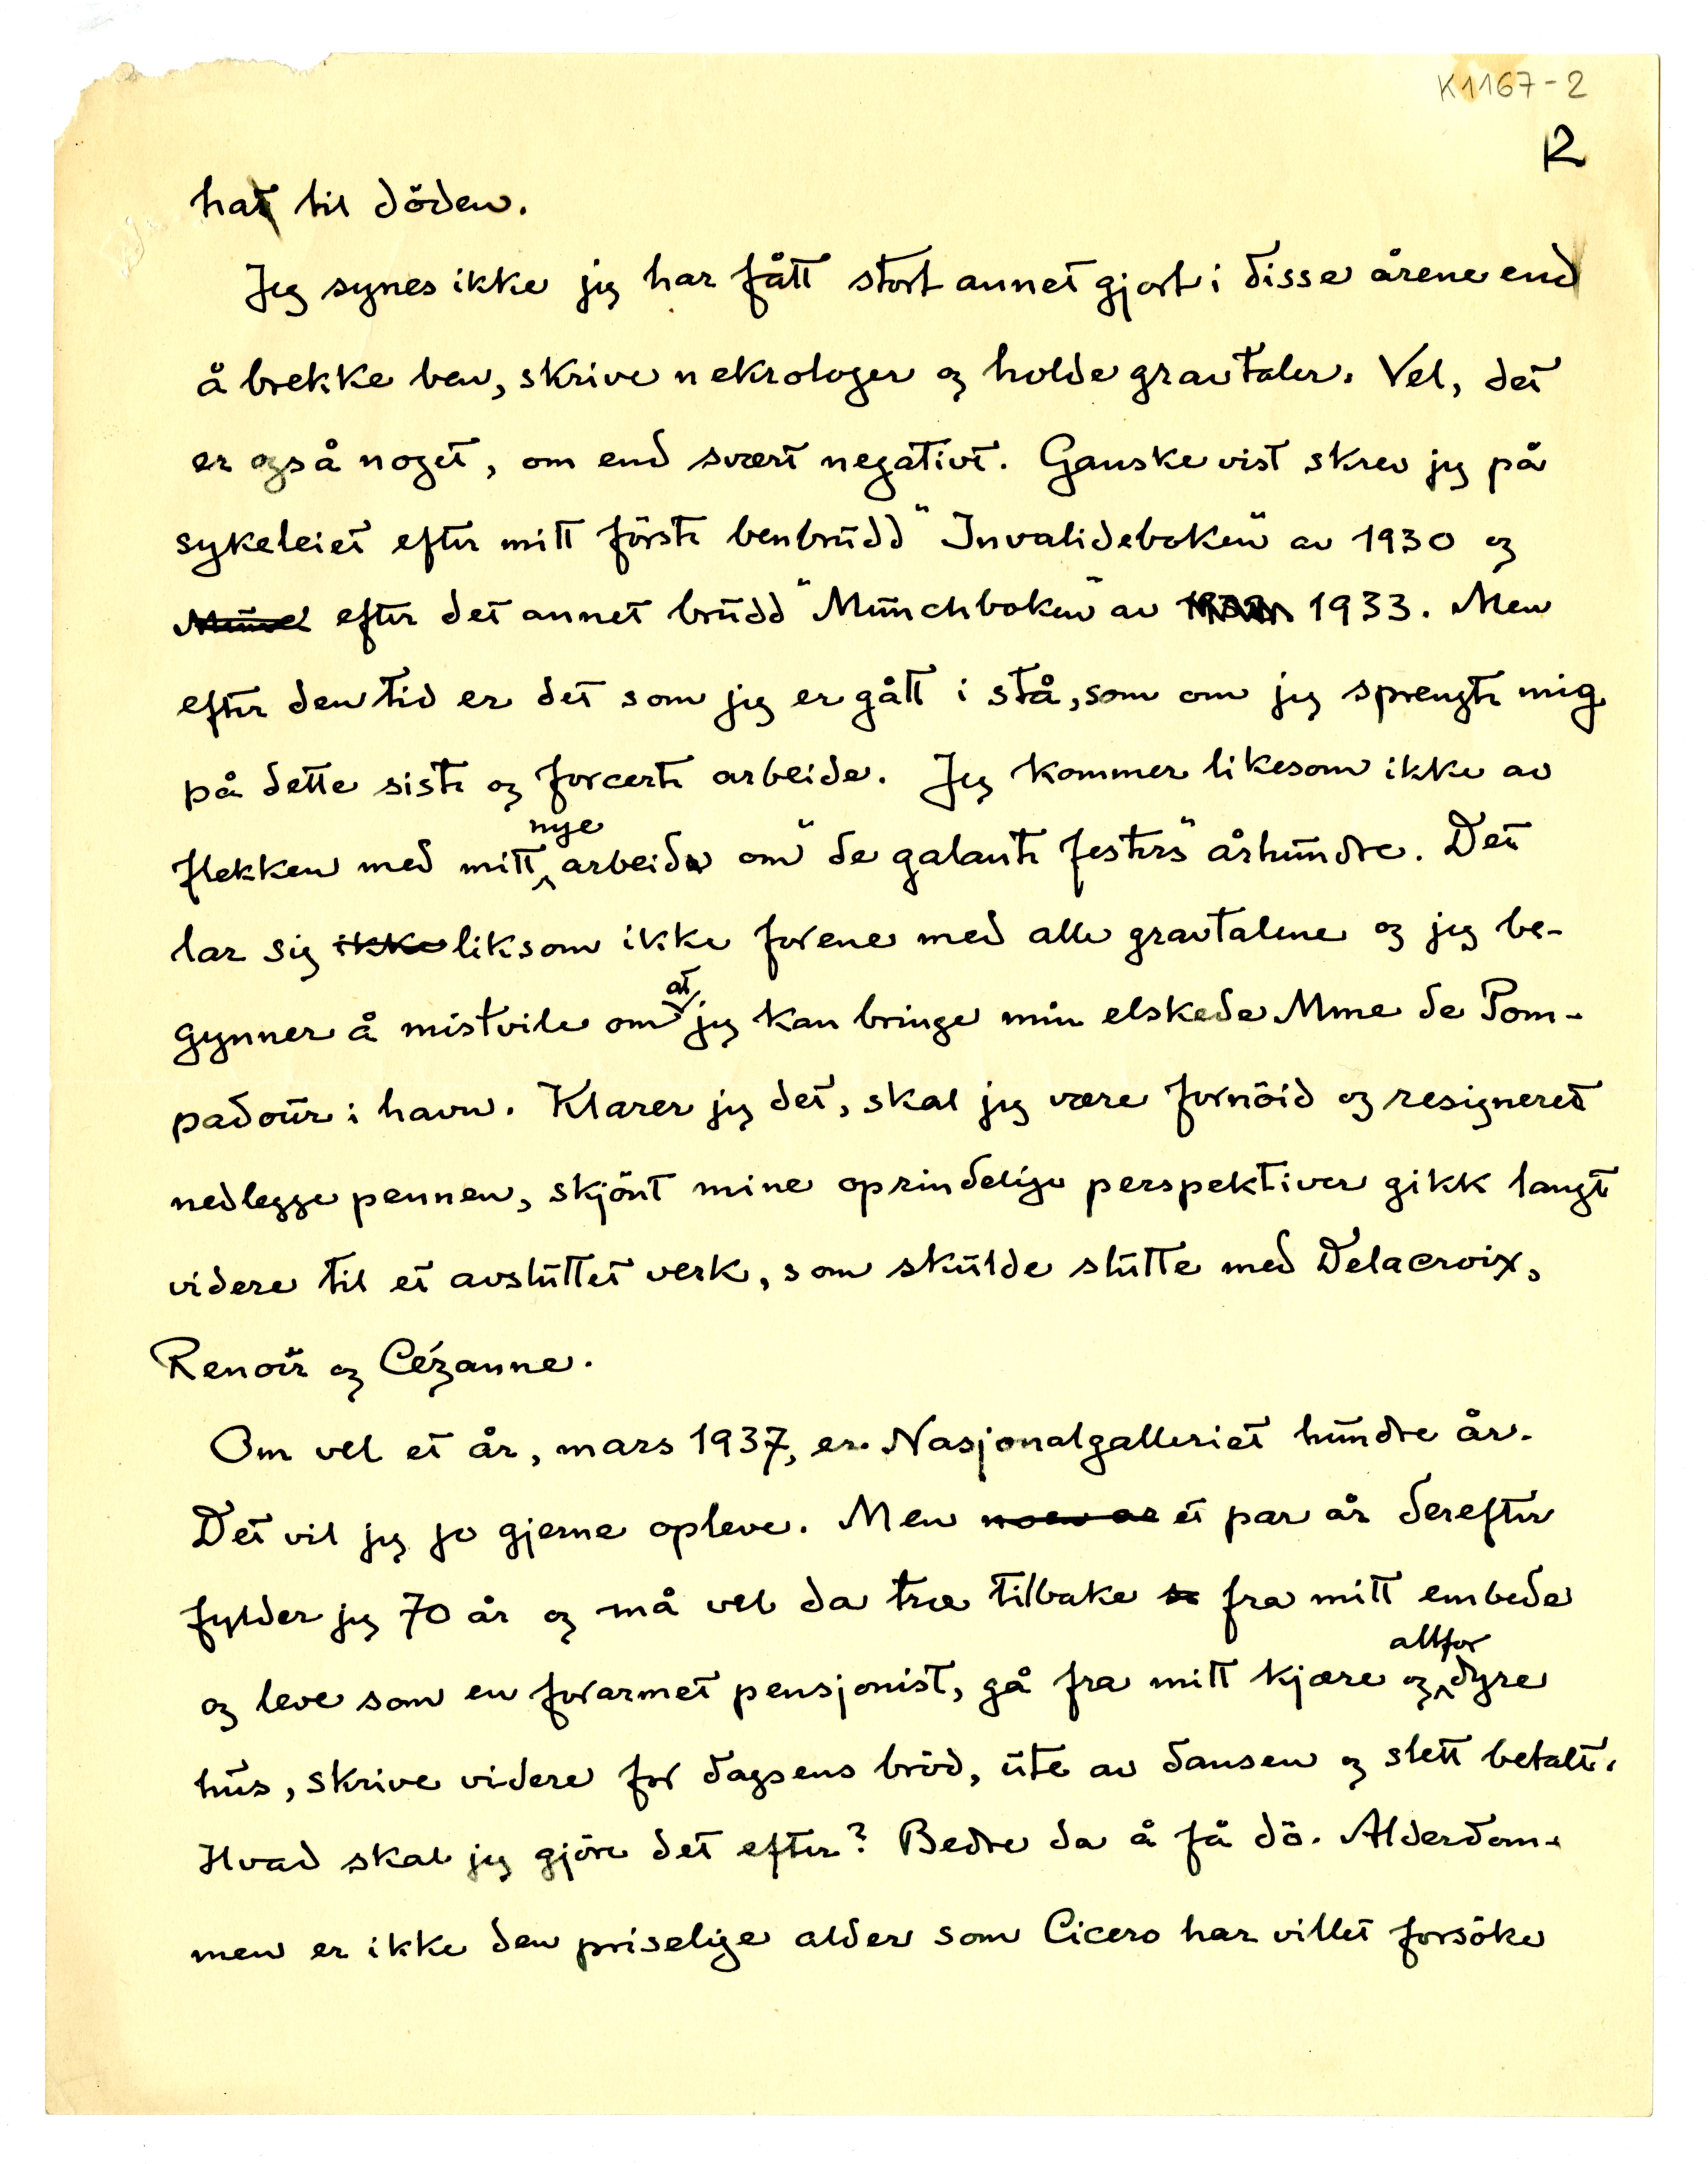 K1167-2
2
hat til döden.
Jeg synes ikke jeg har fått stort annet gjort i disse årene end
å brekke ben, skrive nekrologer og holde gravtaler. Vel, det
er også noget, om end svært negativt. Ganske vist skrev jeg på
sykeleiet efter mitt förste benbrudd "Invalideboken" av 1930 og
efter det annet brudd "Munchboken" av 1933. Men
efter den tid er det som jeg er gått i stå, som om jeg sprengte mig
på dette siste og forcerte arbeide. Jeg kommer likesom ikke av
flekken med mitt nye arbeide om "de galante festers" århundre. Det
lar sig ikke liksom ikke forene med alle gravtalene og jeg be-
gynner å mistvile om at jeg kan bringe min elskede Mme de Pom-
padour i havn. Klarer jeg det, skal jeg være fornöid og resigneret
nedlegge pennen, skjönt mine oprindelige perspektiver gikk langt
videre til et avsluttet verk, som skulde slutte med Delacroix,
Renoir og Cézanne.
Om vel et år, mars 1937, er Nasjonalgalleriet hundre år.
Det vil jeg jo gjerne opleve. Men et par år derefter
fylder jeg 70 år og må vel da træ tilbake fra mitt embede
og leve som en forarmet pensjonist, gå fra mitt kjære og altfor dyre
hus, skrive videre for dagsens bröd, ute av dansen og slett betalt.
Hvad skal jeg gjöre det efter? Bedre da å få dö. Alderdom-
men er ikke den priselige alder som Cicero har villet forsöke